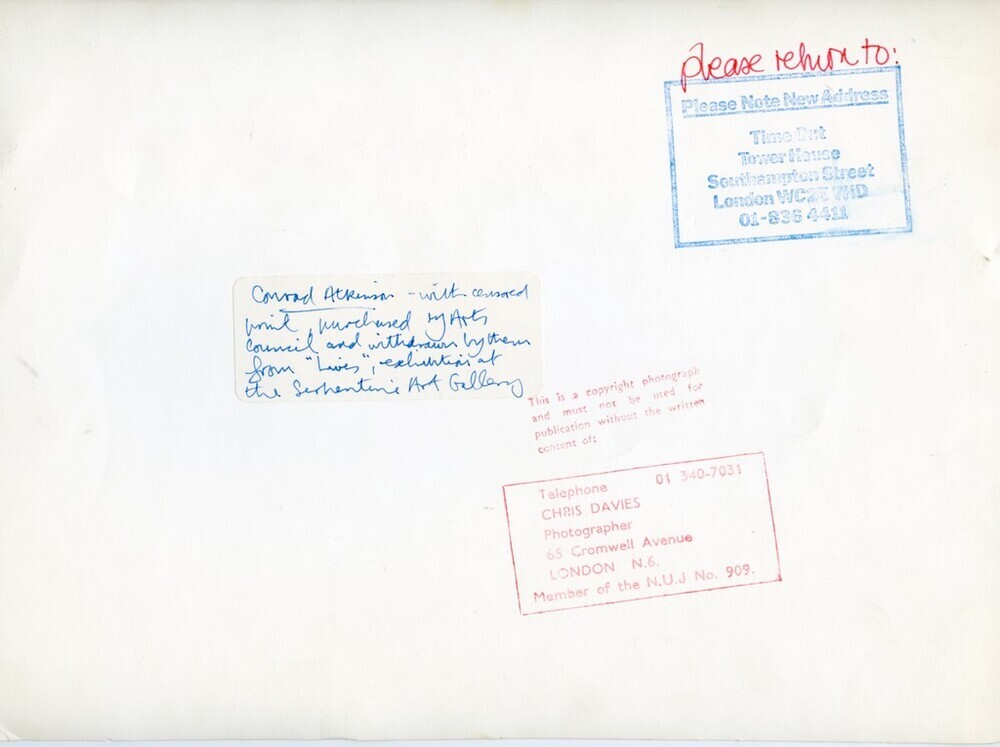 please return to:
Please Note New Address
Time Out
Tower House
Southampton Street
London WC2E 7HD
01-836 4411
Conrad Atkinson - with censored
print, purchased by Arts
Council and withdrawn by them
from "Lives", exhibition at
the Serpentine Art Gallery
This is a copyright photograph
and must not be used for
publication without the written
consent of:
Telephone 01 340-7031
CHRIS DAVIES
Photographer
65 Cromwell Avenue
LONDON N.6.
Member of the N.U.J No. 909.